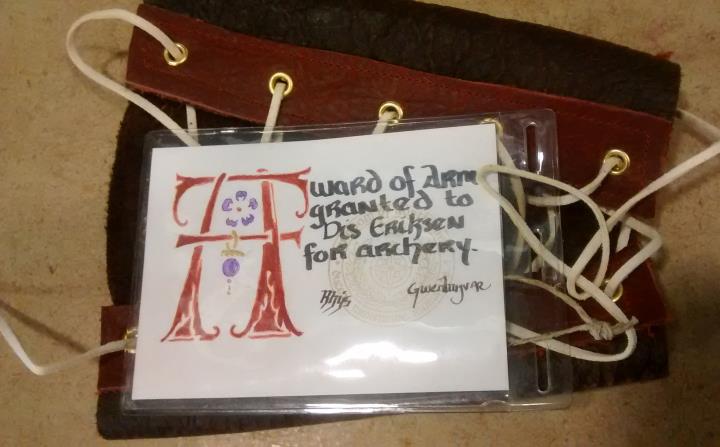 Award of Arm
granted to
Dis Eriksen
for archery.
Rhys